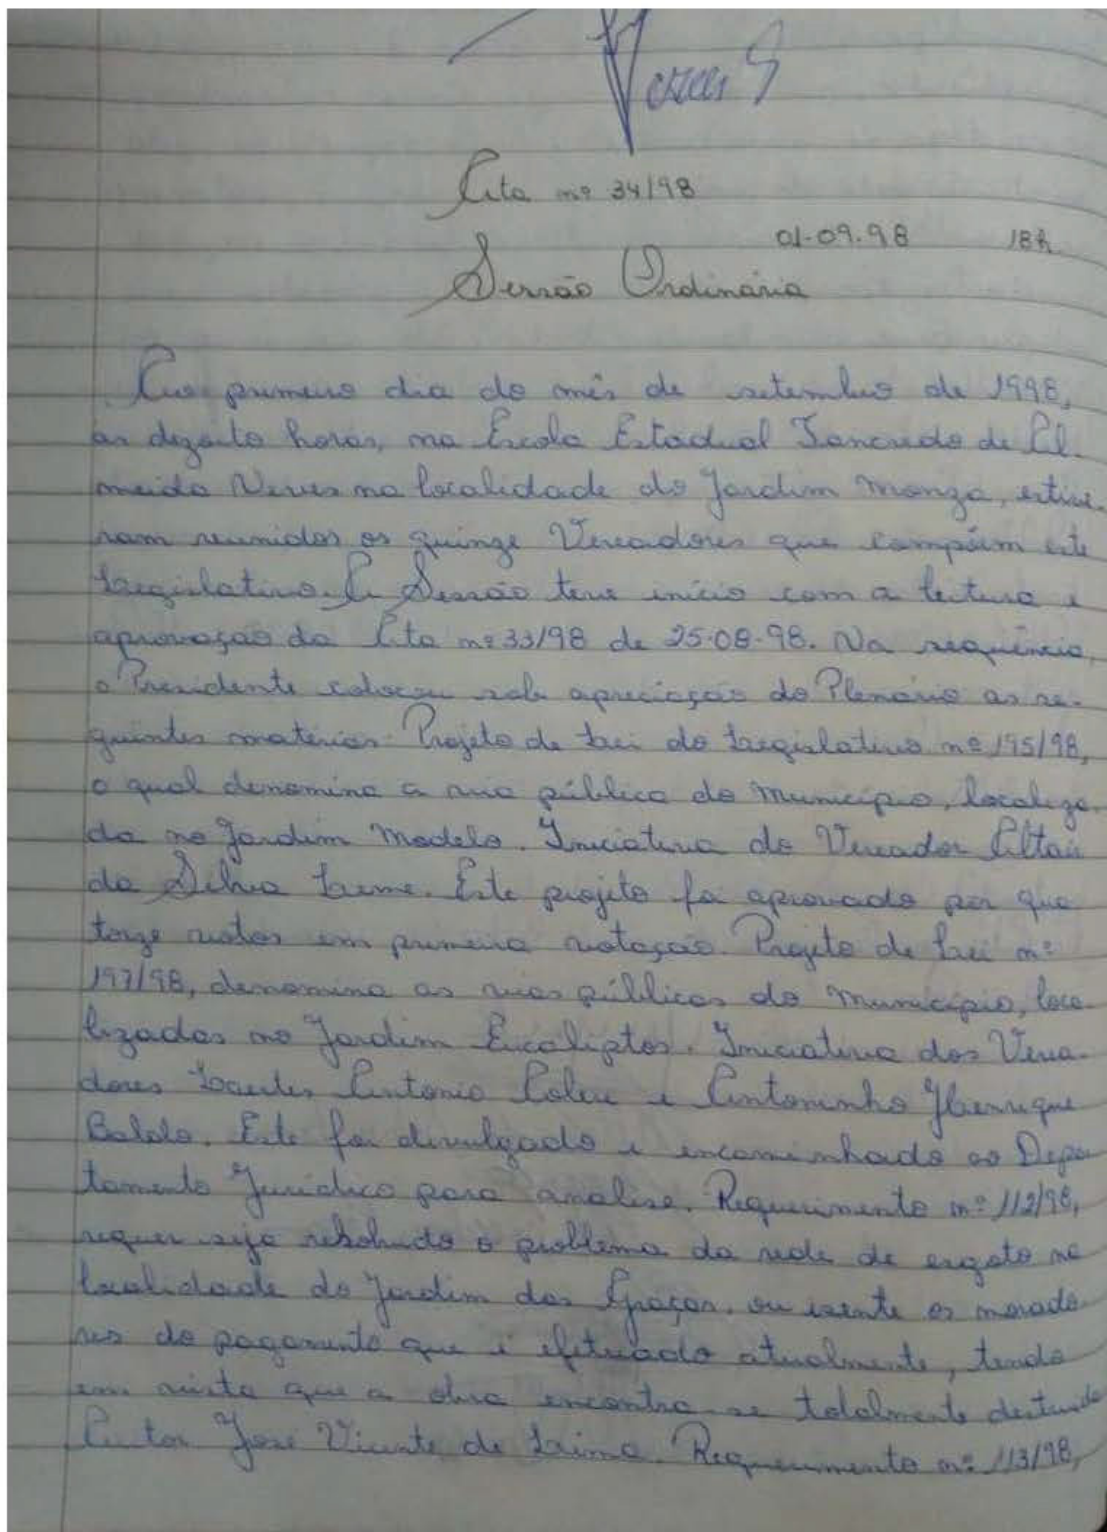 Ata nº 34/98
01-09-98 18h
Sessão Ordinária
Aos primeiro dia do mês de setembro de 1998,
as dezoito horas, na Escola Estadual Tancredo de Al-
meida Neves na localidade do Jardim Monza, estive-
ram reunidos os quinze Vereadores que compõem este
Legislativo. A Sessão teve início com a leitura e
aprovação da Ata nº 33/98 de 25-08-98. Na sequência,
o Presidente colocou sob apreciação do Plenário as se-
guintes matérias: Projeto de Lei do Legislativo nº 195/98,
o qual denomina a rua pública do Município, localiza-
da no Jardim Modelo. Iniciativa do Vereador Altair
da Silva Leme. Este projeto foi aprovado por qua
torze votos em primeira votação. Projeto de Lei nº
197/98, denomina as ruas públicas do Município, loca-
lizadas no Jardim Eucaliptos. Iniciativa dos Verea-
dores Antonio e Antoninho Henrique
Este foi divulgado e encaminhado ao Depar
tamento Jurídico para análise. Requerimento nº 112/98,
requer seja resolvido o problema da rede de esgoto na
localidade do Jardim das Graças, ou isente os morado-
res do pagamento que é efetuado atualmente, tendo
em vista que a obra encontra-se totalmente destruída
Autor José Vicente de Lima. Requerimento nº 113/98,